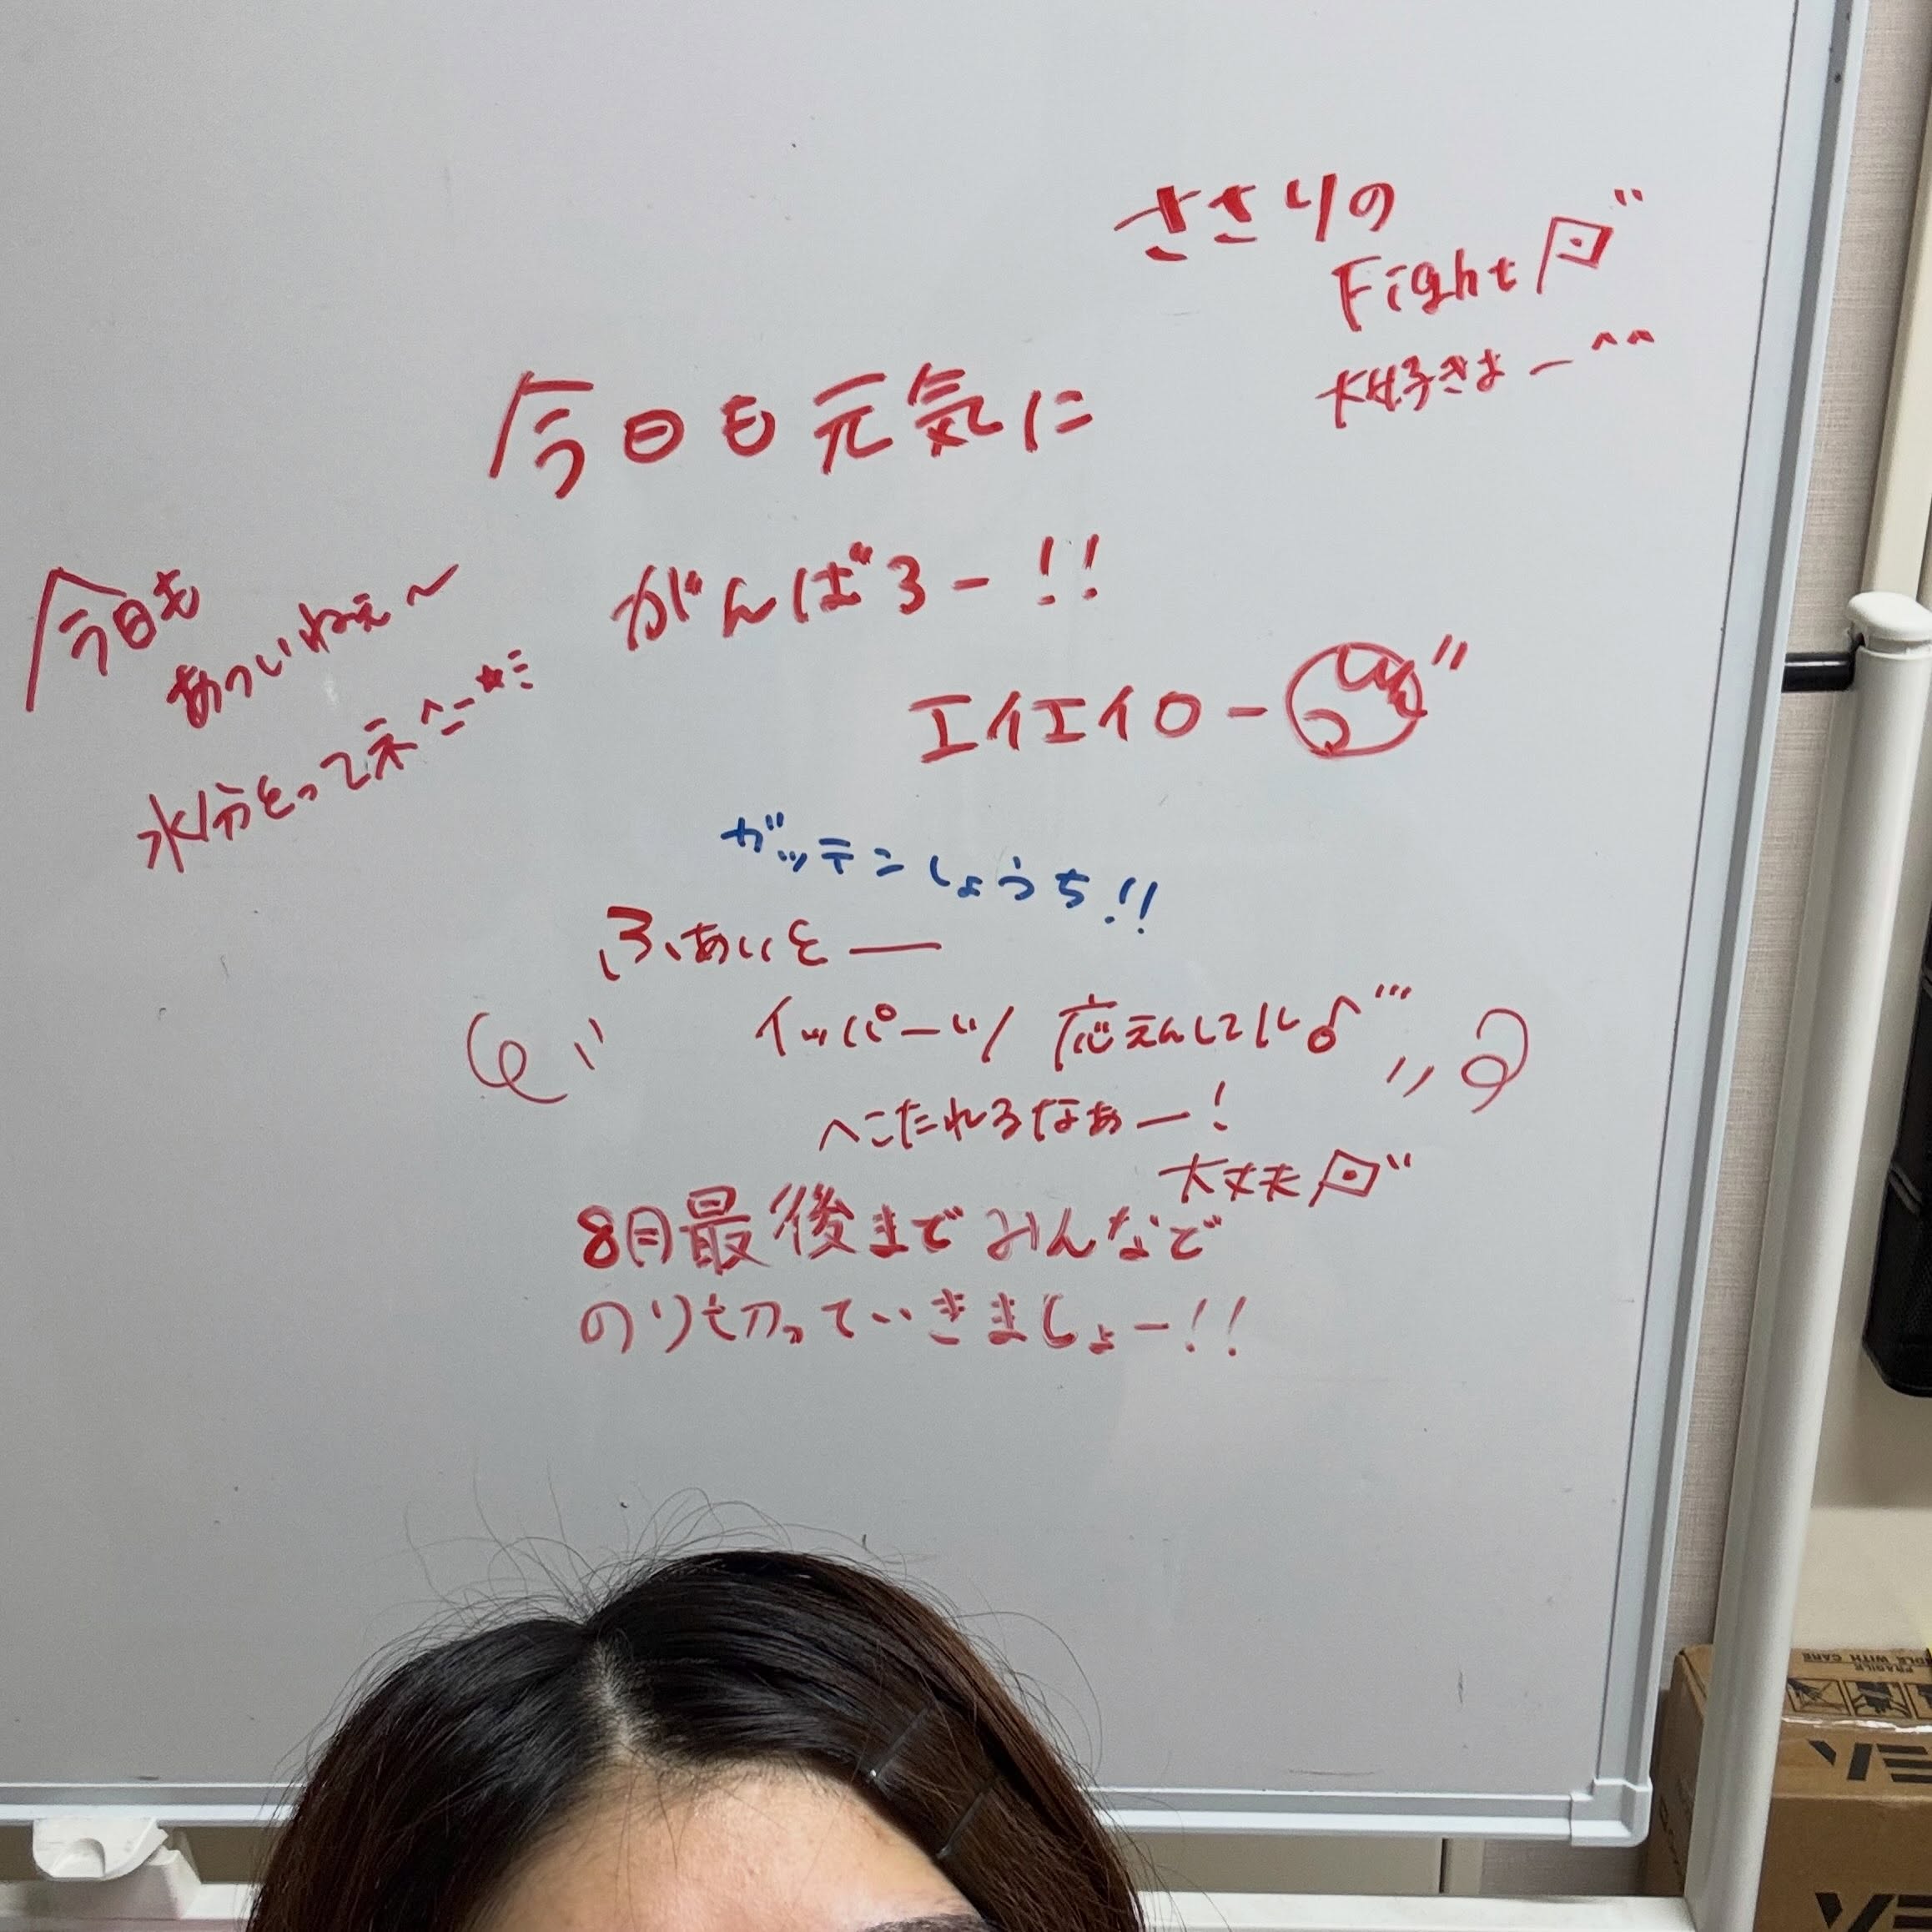 ささりの
Fight
大好きよー^^
今日も元気に
がんばろー!!
今日も
あついねぇ〜
水分とってネ^ー^★
エイエイオー
ガッテンしょうち!!
ふぁいとー
イッパーツ/ 応えんしてル♪
へこたれるなぁー!
大丈夫
8月最後までみんなで
のり切っていきましょー!!
FRAGILE
HANDLE WITH CARE